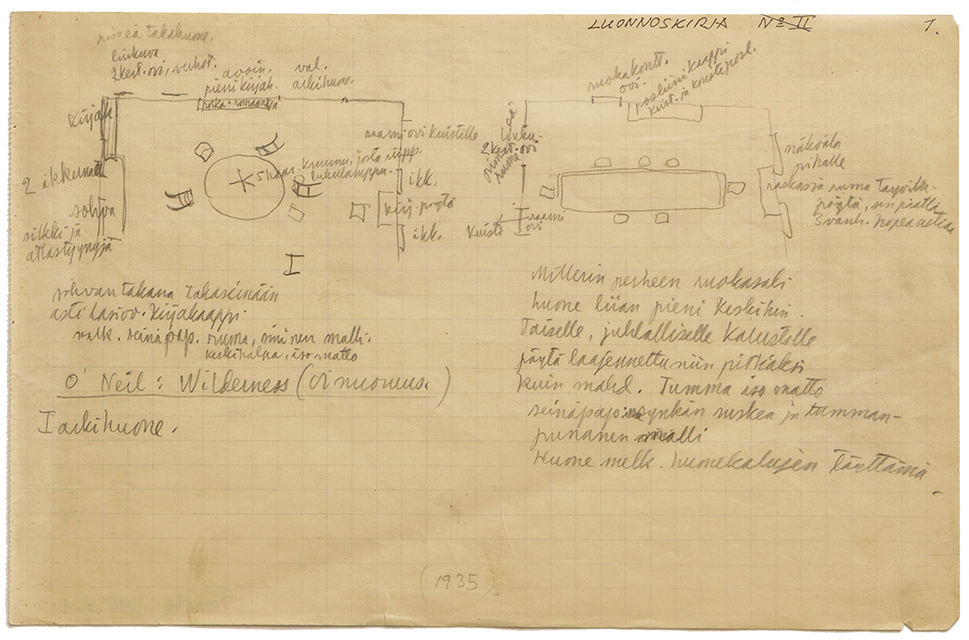 LUONNOSKIRJA No II
1.
pimeä takahuone.
liukuva
2kert. ovi, verhot.
avoin.
pieni kirjah.
val.
arkihuon.
kirjah
2 ikkunat
sohva
silkki ja
atlastyynyjä
raami ovi kuistille
kruunu, josta
lukulamppu.
ikk.
kirj. pöytä
ikk.
I
sohvan takana takaseinään
asti lasiov. kirjakaappi.
valk. seinäpap. ruma, sininen malli.
keskihalpa, iso matto
O'Neil: Wilderness (Oi nuoruus.)
I arkihuone.
ruokakontt.
ovi.
posliini kaappi
2 kert. ovi
huone
näköala
pihalle
raskas ja ruma tarjoilu-
pöytä, sen päällä
3 vanh. hopea astiaa
kuisti
raami
ovi
Millerin perheen ruokasali
huone liian pieni keskihin-
taiselle, juhlalliselle kalustolle
pöytä laajennettu niin pitkäksi
kuin mahd. Tumma iso matto
seinäpap. synkän ruskea ja tumman-
punanen malli
Huone melk. huonekalujen täyttämä.
(1935)